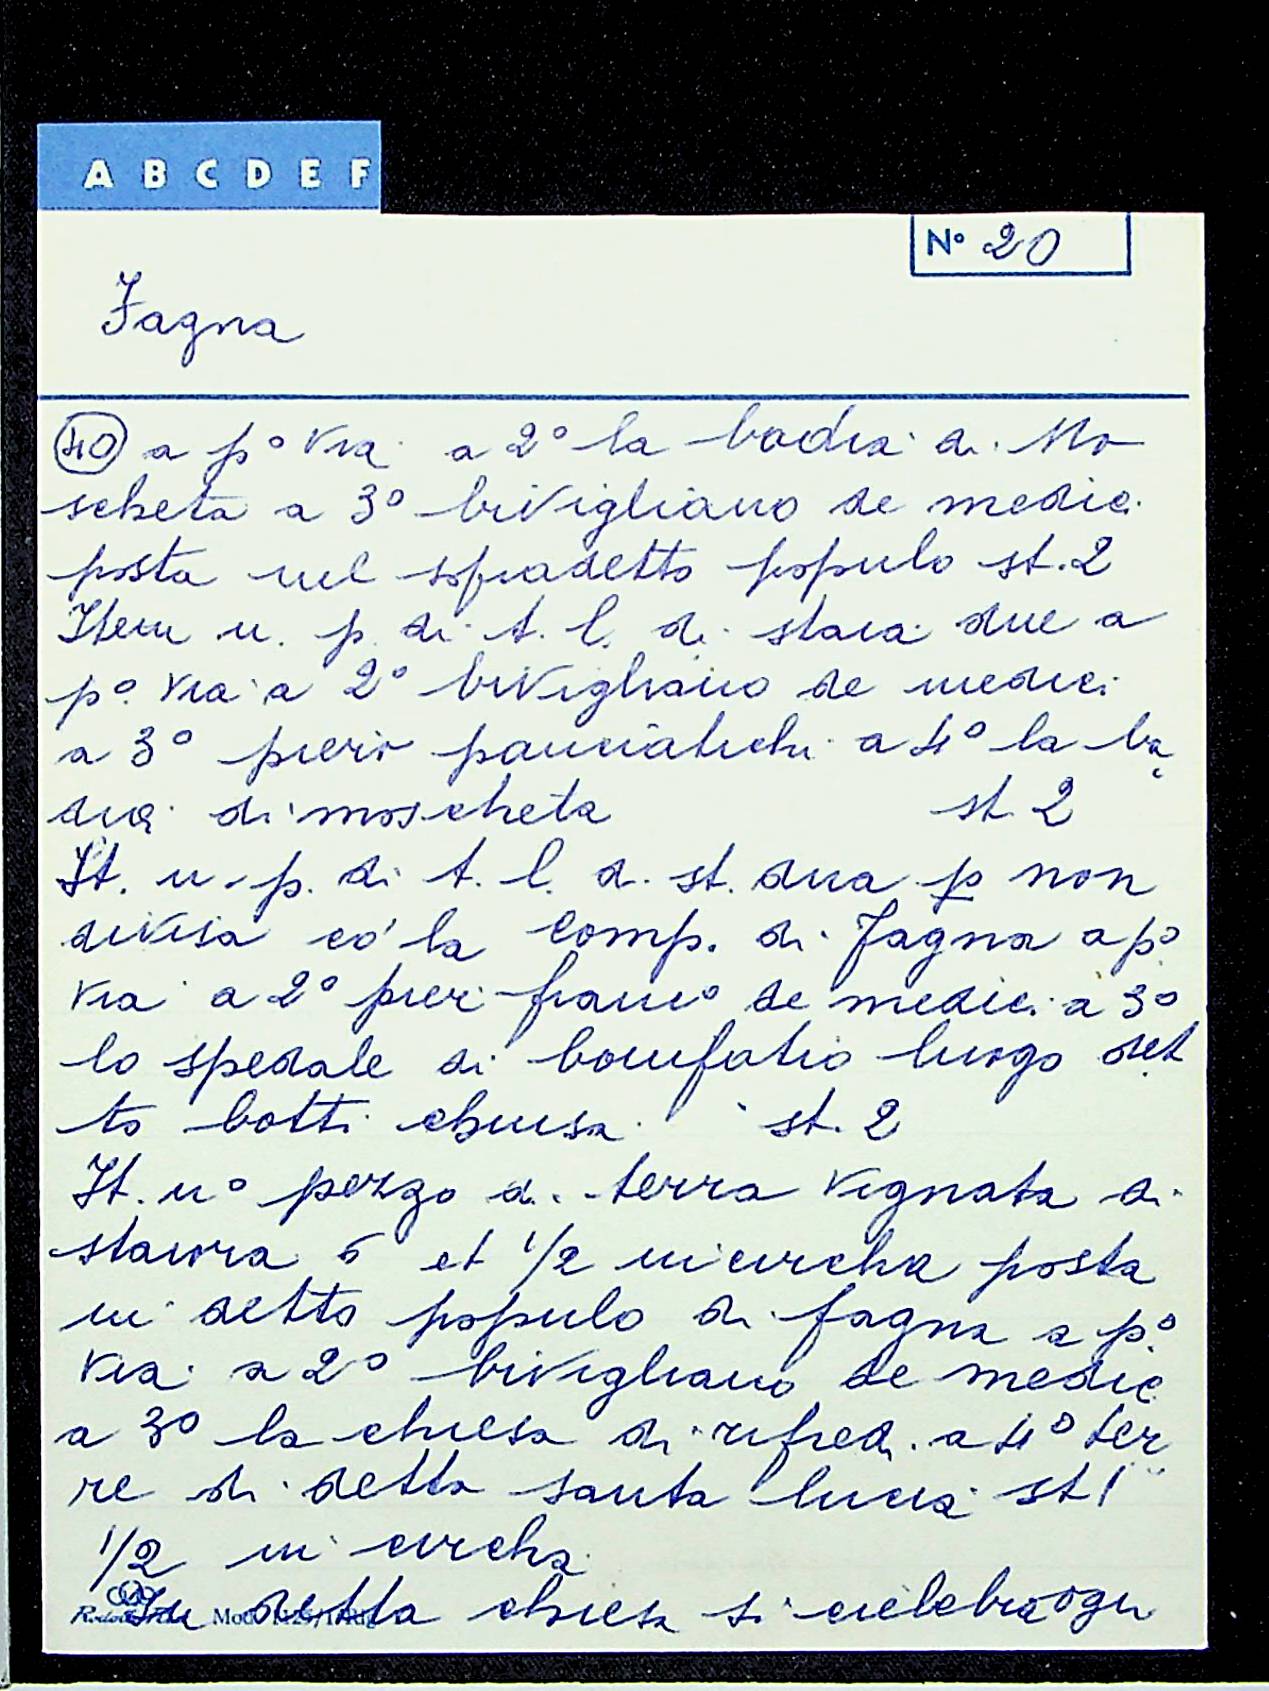 A B C D E F
N° 20
Fagna
40 a p° via a 2° la badia di Mo
scheta a 3° bivigliano de medici
posta nel sopradetto populo st. 2
Item u. p. di t. l. di staia due a
p° via a 2° bivigliano de medici
a 3° piero panciatichi a 4° la ba
dia di moscheta st. 2
It. u. p. di t. l. di st. dua p non
divisa co' la comp. di Fagna a p°
via a 2° pier franc° de medici a 3°
lo spedale di bonifatio luogo det
to botti chiusa st. 2
It. u° pezzo di terra vignata di
staiora 6 et 1/2 in circha posta
in detto populo di fagna a p°
via a 2° bivigliano de medic
a 3° la chiesa di rifredi a 4° ter
re di detta santa lucia st 1
1/2 in circha
In detta chiesa si cielebra ogn